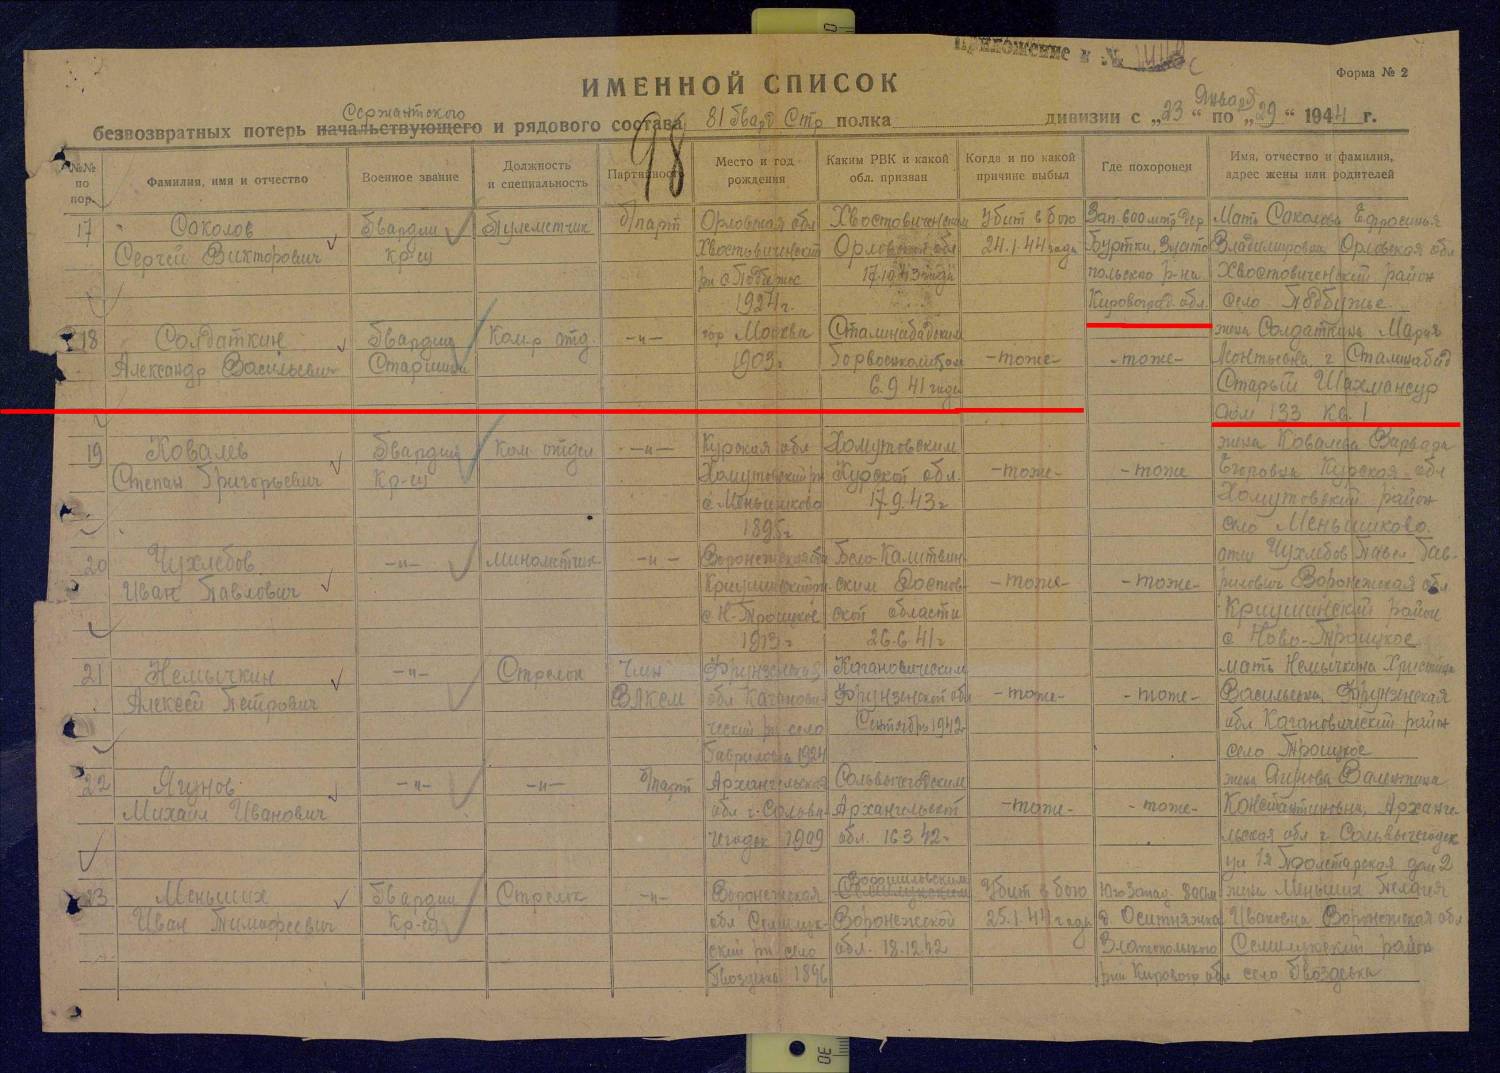 Приложение к №
Форма № 2
ИМЕННОЙ СПИСОК
Сержантского
безвозвратных потерь начальствующего и рядового состава 81 Гвард Стр полка дивизии с „23“ по „29“ Января 1944 г.
98
№№ по пор.
Фамилия, имя и отчество
Военное звание
Должность и специальность
Партийность
Место и год рождения
Каким РВК и какой обл. призван
Когда и по какой причине выбыл
Где похоронен
Имя, отчество и фамилия, адрес жены или родителей
17
Соколов
Сергей Викторович
Гвардии
кр-ец
Пулеметчик
б/парт
Орловская обл
Хвостовичский
1924г.
Хвостовичским
Орловской обл
Убит в бою
24.1.44 года
Зап. 800 мт дер
Буртки, Злато
польского р-на
Кировоград обл.
Мать Соколова Ефросинья
Владимировна Орловская обл
Хвостовичский район
село Подбужье
18
Солдаткин
Александр Васильевич
Гвардии
Старшина
Ком-р отд.
-"-
гор Москва
1903г.
Сталинабадским
Горвоенкоматом
6.9.41 года
-тоже-
-тоже-
жена Солдаткина Марья
г Сталинабад
Старый Шахмансур
дом 133 кв. 1
19
Ковалев
Степан Григорьевич
Гвардии
Кр-ец
Ком. отдел
-"-
Курская обл
Хомутовский рн
с Меньшиково
1895г
Хомутовским
Курской обл.
17.9.43г
-тоже-
-тоже
жена Ковалева Варвара
Егоровна Курская обл
Хомутовский район
село Меньшиково.
20
Чухлебов
Иван Павлович
-"-
Минометчик
-"-
Воронежская обл
с Н-Троицкое
1913г
Бело-Калитвин
ским Ростов-
ской области
26.6.41г
-тоже-
-тоже-
отец Чухлебов Павел Гав-
рилович Воронежская обл
Криушинский район
с Ново-Троицкое
21
Немычкин
Алексей Петрович
-"-
Стрелок
Член
ВЛКСМ
Фрунзенская
обл Каганови-
ческий рн село
Гавриловка 1924
Кагановическим
Фрунзенской обл
Сентябрь 1942г
-тоже-
-тоже-
мать Немычкина
Васильевна, Фрунзенская
обл Кагановический район
село Троицкое
22
Ягунов
Михаил Иванович
-"-
-"-
б/парт
Архангельская
обл г. Сольвы-
чегодск 1909
Сольвычегодским
Архангельской
обл. 16.3.42г
-тоже-
-тоже-
жена Ягунова Валентина
Константиновна, Арханге-
льская обл г Сольвычегодск
ул 1я Пролетарская дом 2
23
Меньших
Иван Тимофеевич
Гвардии
Кр-ец
Стрелок
-"-
Воронежская
обл Семилук-
ский рн село
Гвоздевка 1896
Ворошиловским
Воронежской
обл. 18.12.42
Убит в бою
25.1.44 года
Юго Запад. 800м
д. Оситняжка
Златопольского
р-на Кировогр обл
жена Меньших Пелагея
Ивановна Воронежская обл
Семилукский район
село Гвоздевка